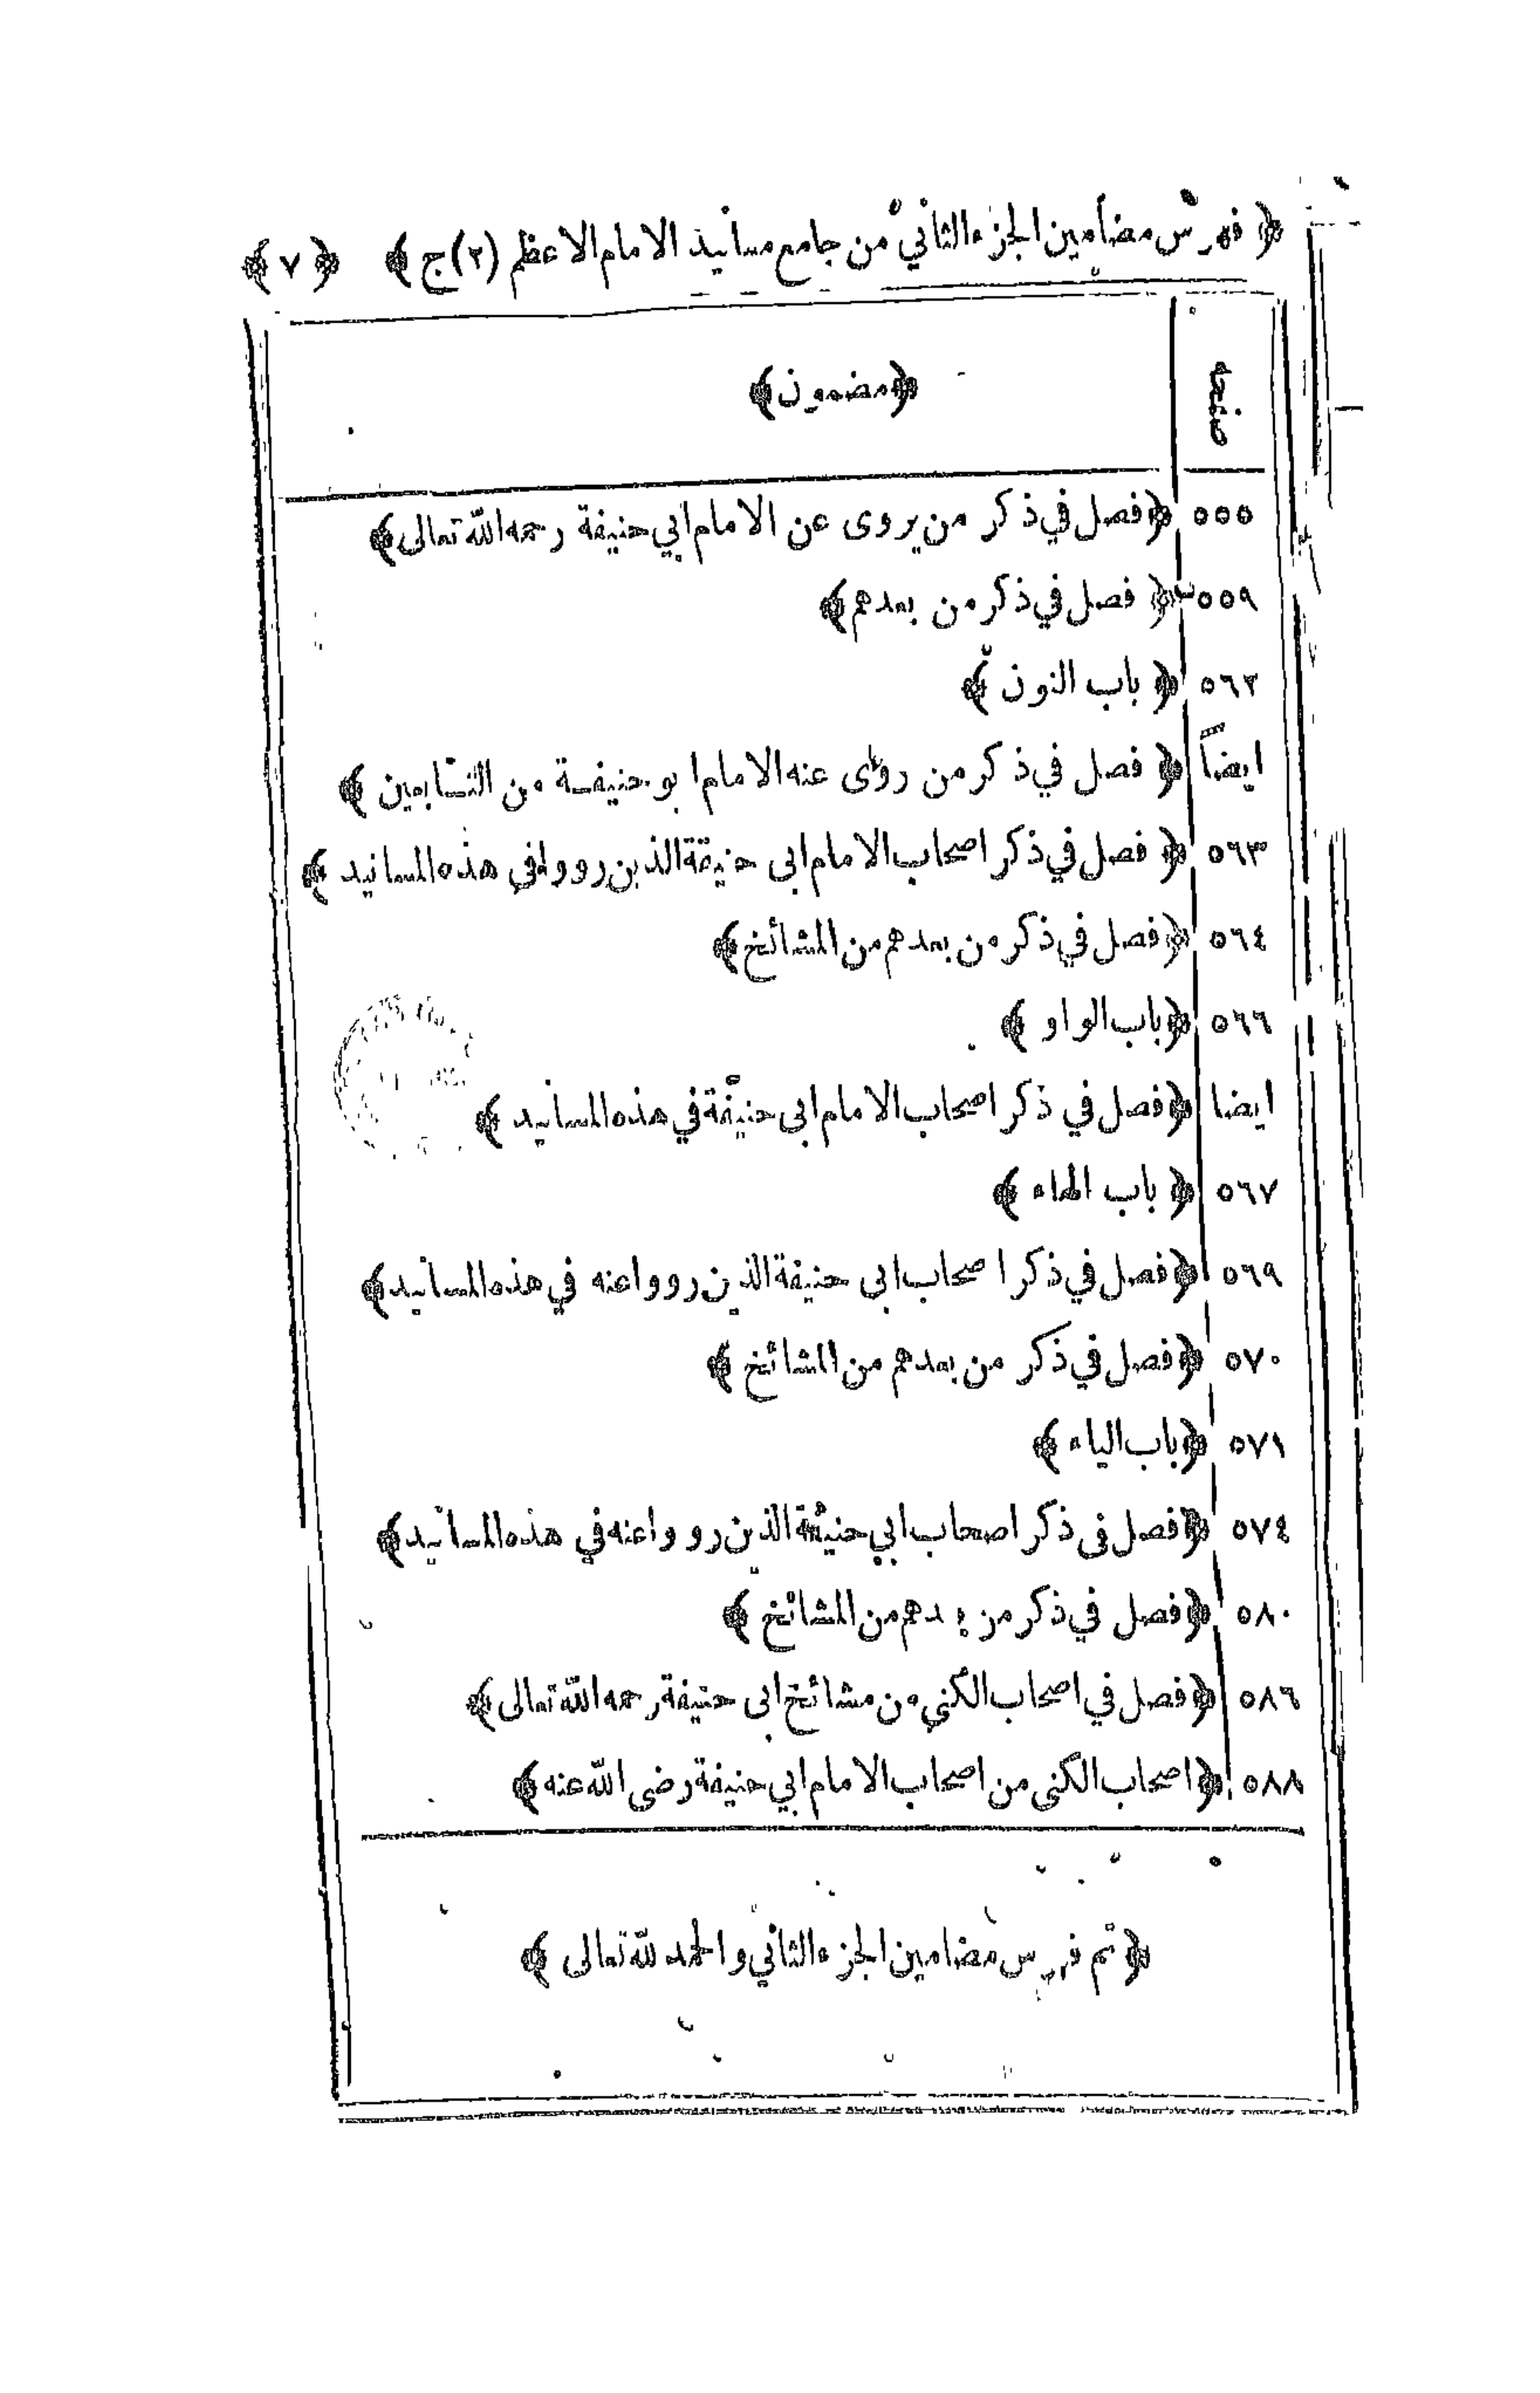 ﴿ فهرس مضامين الجزء الثاني من جامع مسانيد الامام الاعظم (٢) ج ﴾ ﴿ ٧ ﴾
صفحه ﴿مضمون﴾
٥٥٥ ﴿فصل في ذكر من يروى عن الامام ابي حنيفة رحمه الله تعالى﴾
٥٥٩ ﴿ فصل في ذكر من بعدهم﴾
٥٦٢ ﴿ باب النون ﴾
ايضاً ﴿ فصل في ذكر من روى عنه الامام ابو حنيفة من التابعين ﴾
٥٦٣ ﴿ فصل في ذكر اصحاب الامام ابى حنيفة الذين رووا في هذه المسانيد ﴾
٥٦٤ ﴿فصل في ذكر من بعدهم من المشائخ﴾
٥٦٦ ﴿باب الواو ﴾
ايضا ﴿فصل في ذكر اصحاب الامام ابى حنيفة في هذه المسانيد ﴾
٥٦٧ ﴿ باب الهاء ﴾
٥٦٩ ﴿فصل في ذكر اصحاب ابى حنيفة الذين رووا عنه في هذه المسانيد﴾
٥٧٠ ﴿فصل في ذكر من بعدهم من المشائخ ﴾
٥٧١ ﴿باب الياء ﴾
٥٧٤ ﴿فصل فى ذكر اصحاب ابي حنيفة الذين رووا عنه في هذه المسانيد﴾
٥٨٠ ﴿فصل في ذكر من بعدهم من المشائخ ﴾
٥٨٦ ﴿فصل في اصحاب الكني من مشائخ ابى حنيفة رحمه الله تعالى﴾
٥٨٨ ﴿اصحاب الكنى من اصحاب الامام ابي حنيفة رضى الله عنه﴾
﴿تم فهرس مضامين الجزء الثاني والحمد لله تعالى ﴾